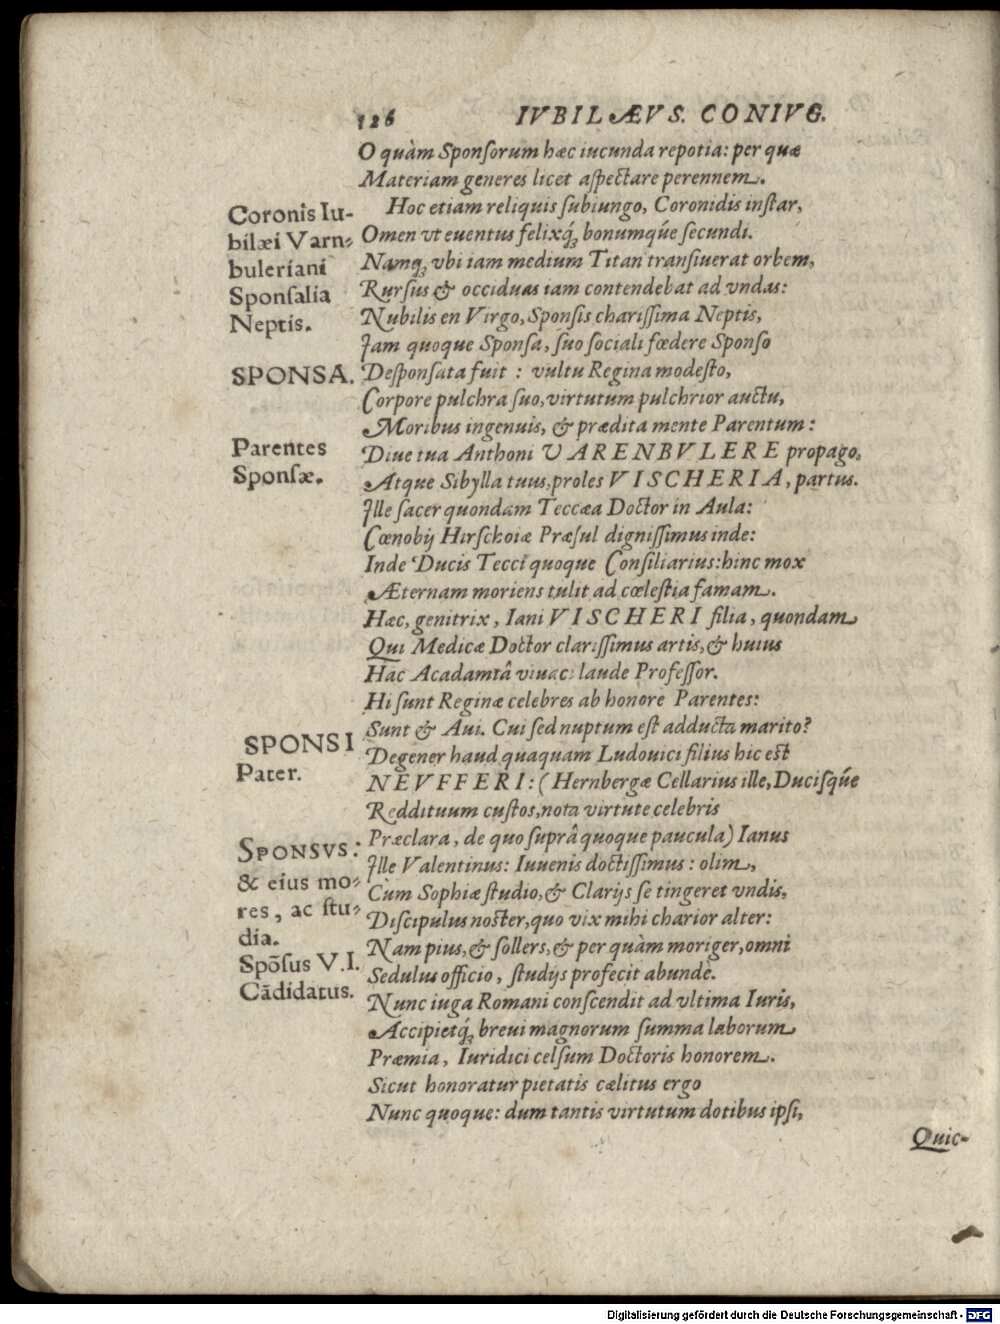 126 IVBILÆVS. CONIVG.
O quàm Sponſorum hæc iucunda repotia: per quæ
Materiam generes licet aſpectare perennem.
Hoc etiam reliquis ſubiungo, Coronidis inſtar,
Omen vt euentus felixq́ꝫ bonumq́ue ſecundi.
Namqꝫ vbi iam medium Titan tranſiuerat orbem,
Rurſus & occiduas iam contendebat ad vndas:
Nubilis en Virgo, Sponſis chariſſima Neptis,
Jam quoque Sponſa, ſuo ſociali fœdere Sponſo
Deſponſata fuit : vultu Regina modeſto,
Corpore pulchra ſuo, virtutum pulchrior auctu,
Moribus ingenuis, & prædita mente Parentum:
Diue tua Anthoni VARENBVLERE propago,
Atque Sibylla tuus, proles VISCHERIA, partus.
Jlle ſacer quondam Teccæa Doctor in Aula:
Cœnobij Hirſchoiæ Præſul digniſſimus inde:
Inde Ducis Tecci quoque Conſiliarius: hinc mox
Æternam moriens tulit ad cœleſtia famam.
Hæc, genitrix, Iani VISCHERI filia, quondam
Qui Medicæ Doctor clariſſimus artis, & huius
Hac Acadamiâ viuaci laude Profeſſor.
Hi ſunt Reginæ celebres ab honore Parentes:
Sunt & Aui. Cui ſed nuptum eſt adducta marito?
Degener haud quaquam Ludouici filius hic eſt
NEVFFERI: (Hernbergæ Cellarius ille, Duciſq́ue
Reddituum cuſtos, nota virtute celebris
Præclara, de quo ſuprâ quoque paucula) Ianus
Jlle Valentinus: Iuuenis doctiſſimus: olim,
Cùm Sophiæ ſtudio, & Clarijs ſe tingeret vndis,
Diſcipulus noſter, quo vix mihi charior alter:
Nam pius, & ſollers, & per quàm moriger, omni
Sedulus officio, ſtudijs profecit abundè.
Nunc iuga Romani conſcendit ad vltima Iuris,
Accipietq́ꝫ breui magnorum ſumma laborum
Præmia, Iuridici celſum Doctoris honorem.
Sicut honoratur pietatis cælitus ergo
Nunc quoque: dum tantis virtutum dotibus ipſi,
Quic-
Coronis Iu-
bilæi Varn-
buleriani
Sponſalia
Neptis.
SPONSA.
Parentes
Sponſæ.
SPONSI
Pater.
SPONSVS:
& eius mo-
res, ac ſtu-
dia.
Spõſus V.I.
Cãdidatus.
Digitalisierung gefördert durch die Deutsche Forschungsgemeinschaft - DFG